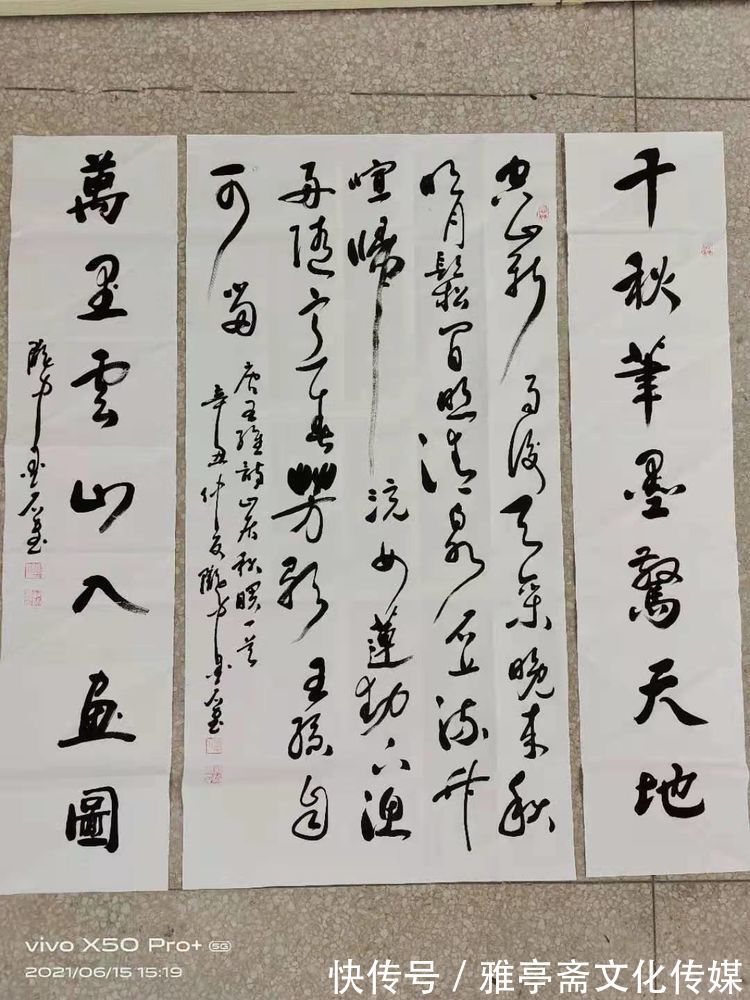 千秋筆墨驚天地
空山新雨後天氣晚来秋
明月鬆間照清泉石上流竹
喧歸浣女蓮動下漁
舟随意春芳歇王孫自
可留
唐王維詩山居秋暝一首
辛丑仲夏隴中墨石
萬里雲山入畫圖
隴中墨石
vivo X50 Pro+ 5G
2021/06/15 15:19
快传号 / 雅亭斋文化传媒